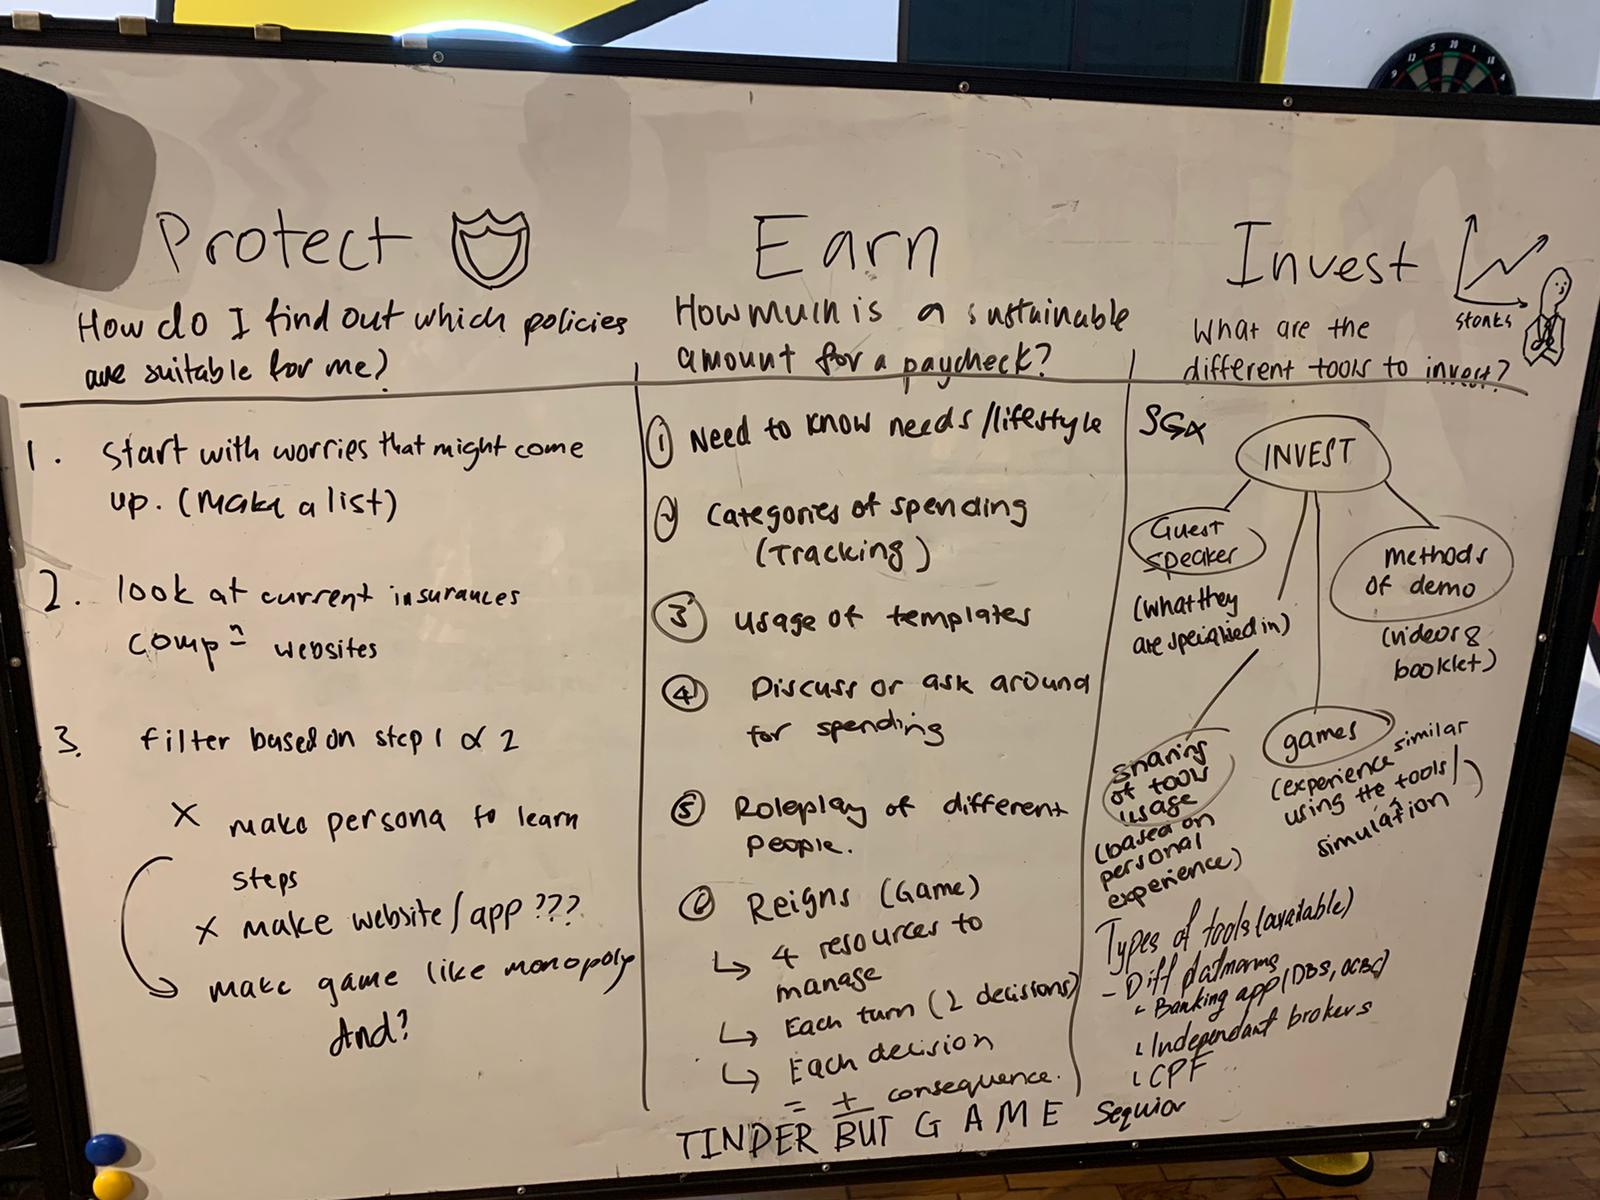 Protect
How do I find out which policies
are suitable for me?
1. start with worries that might come
up. (Make a list)
2. look at current insurances
compⁿ websites
3. filter based on step 1 & 2
X make persona to learn
steps
X make website/app ???
make game like monopoly
And?
Earn
How much is a sustainable
amount for a paycheck?
① Need to know needs/lifestyle
② Categories of spending
(Tracking)
③ usage of templates
④ Discuss or ask around
for spending
⑤ Roleplay of different
people.
⑥ Reigns (Game)
↳ 4 resources to
manage
↳ Each turn (2 decisions)
↳ Each decision
= ± consequence.
TINDER BUT GAME
Invest
stonks
What are the
different tools to invest?
SGX
INVEST
Guest
speaker
(what they
are specialised in)
methods
of demo
(videos &
booklet)
sharing
of tools
usage
(based on
personal
experience)
games
(experience similar
using the tools/
simulation)
Types of tools (available)
- Diff platforms
↳ Banking app (DBS, OCBC)
↳ Independant brokers
↳ CPF
12 5 20 1 18 4
9